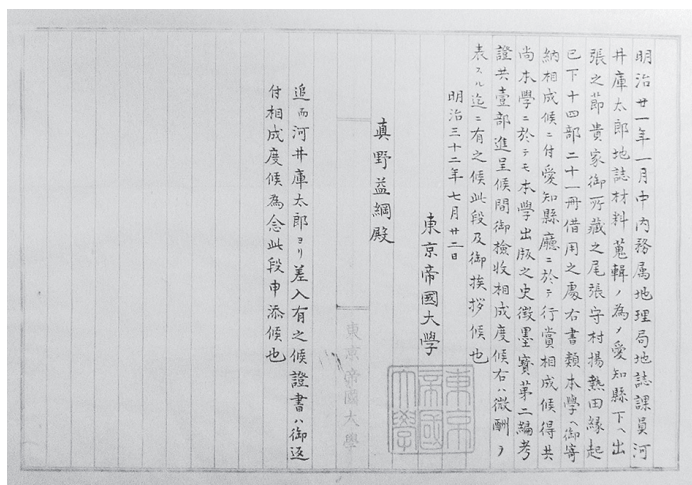 明治廿一年一月中内務属地理局地誌課員河
井庫太郎地誌材料蒐輯ノ為メ愛知縣下ヘ出
張之節貴家御所藏之尾張守村揚熱田縁起
已下十四部二十一冊借用之處右書類本學ヘ御寄
納相成候ニ付愛知縣廳ニ於テ行賞相成候得共
尚本學ニ於テモ本學出版之史徴墨寳第二編考
證共壹部進呈候間御檢收相成度候右ハ微酬ヲ
表スル迄ニ有之候此段及御挨拶候也
明治三十二年七月廿二日
東京帝國大學
眞野益綱殿
追而河井庫太郎ヨリ差入有之候證書ハ御返
付相成度候為念此段申添候也
東京帝國大學
東京帝國大學